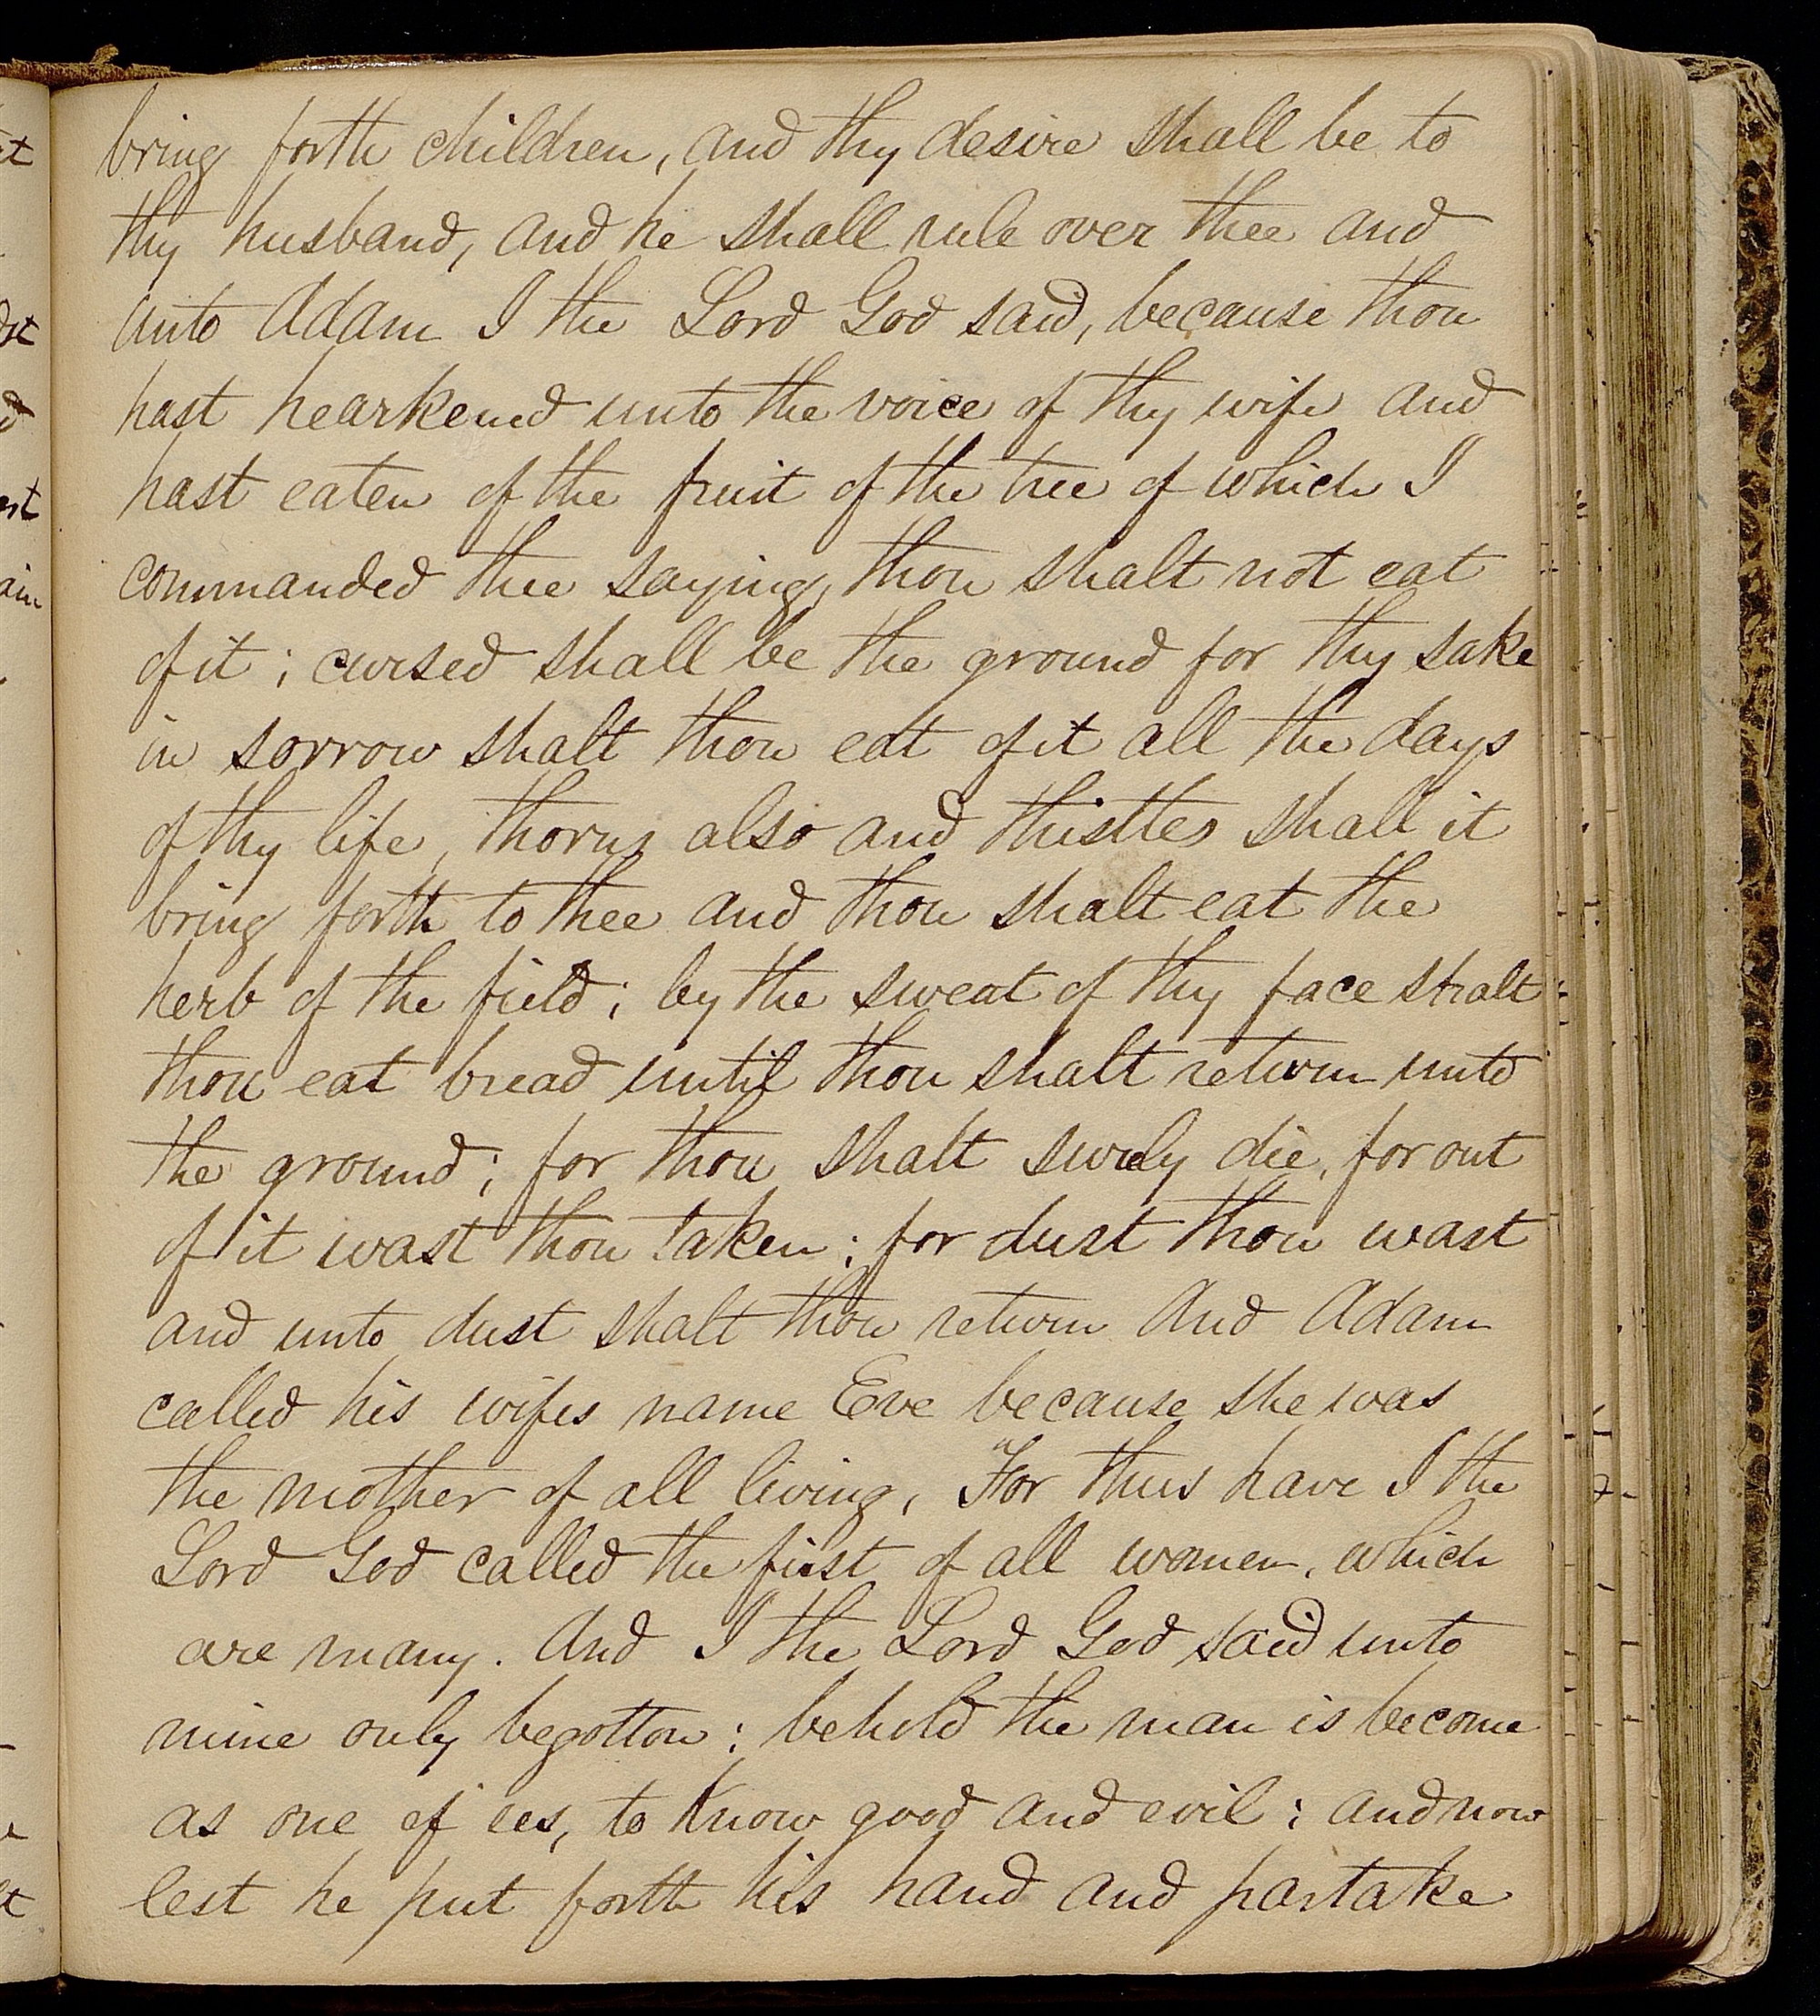 bring forth children, and thy desire shall be to
thy husband, and he shall rule over thee and
unto Adam I the Lord God said, because thou
hast hearkened unto the voice of thy wife and
hast eaten of the fruit of the tree of which I
commanded thee saying, thou shalt not eat
of it; cursed shall be the ground for thy sake
in sorrow shalt thou eat of it all the days
of thy life, thorns also and thistles shall it
bring forth to thee and thou shalt eat the
herb of the field; by the sweat of thy face shalt
thou eat bread until thou shalt return unto
the ground; for thou shalt surely die, for out
of it wast thou taken; for dust thou wast
and unto dust shalt thou return And Adam
called his wifes name Eve because she was
the mother of all living, For thus have I the
Lord God called the first of all women, which
are many. And I the Lord God said unto
mine only begotton: behold the man is become
as one of us, to know good and evil; and now
lest he put forth his hand and partake